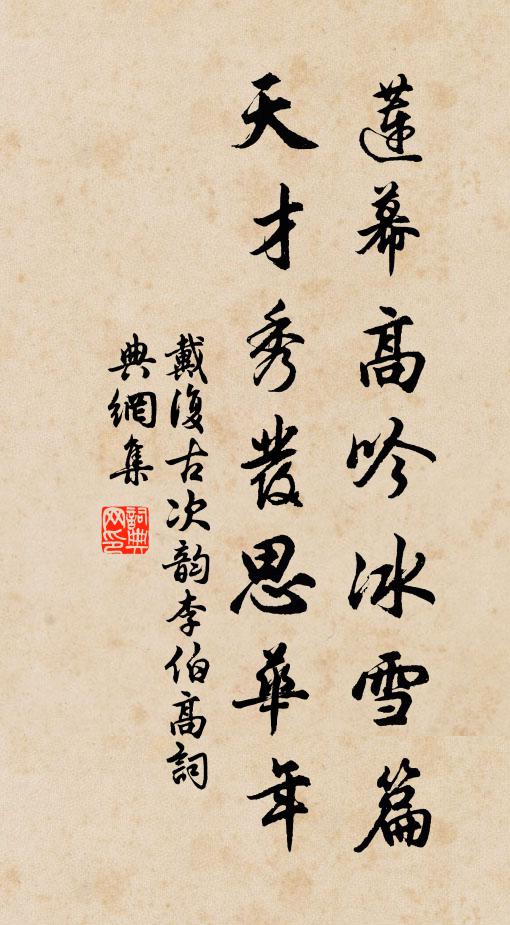 蓮幕高吟冰雪篇
天才秀發思華年
戴復古次韵李伯高詞
典網集
詞典網印